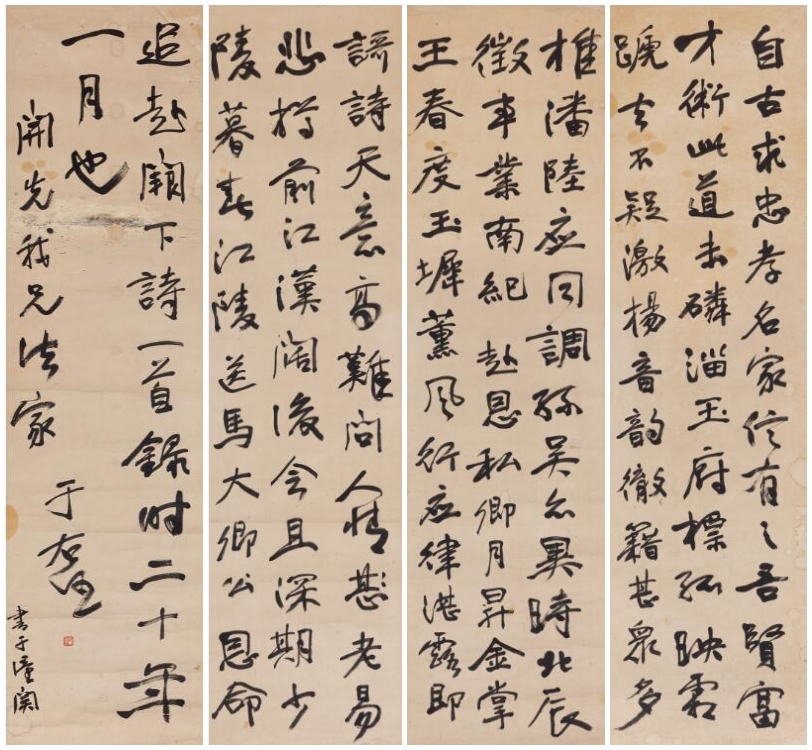 自古求忠孝名家信有之吾賢富
才術此道未磷淄玉府標孤映霜
蹏去不疑激楊音韵徹籍甚衆多
推潘陸應同調孫吳亦異時北辰
徵事業南紀赴恩私卿月昇金掌
王春度玉墀薰風行應律湛露即
謌詩天意高難問人情老易
悲樽前江漢闊後会且深期少
陵暮春江陵送馬大卿公恩命
追赴闕下詩一首錄時二十年
一月也
開先我兄法家
于右任
書于潼関